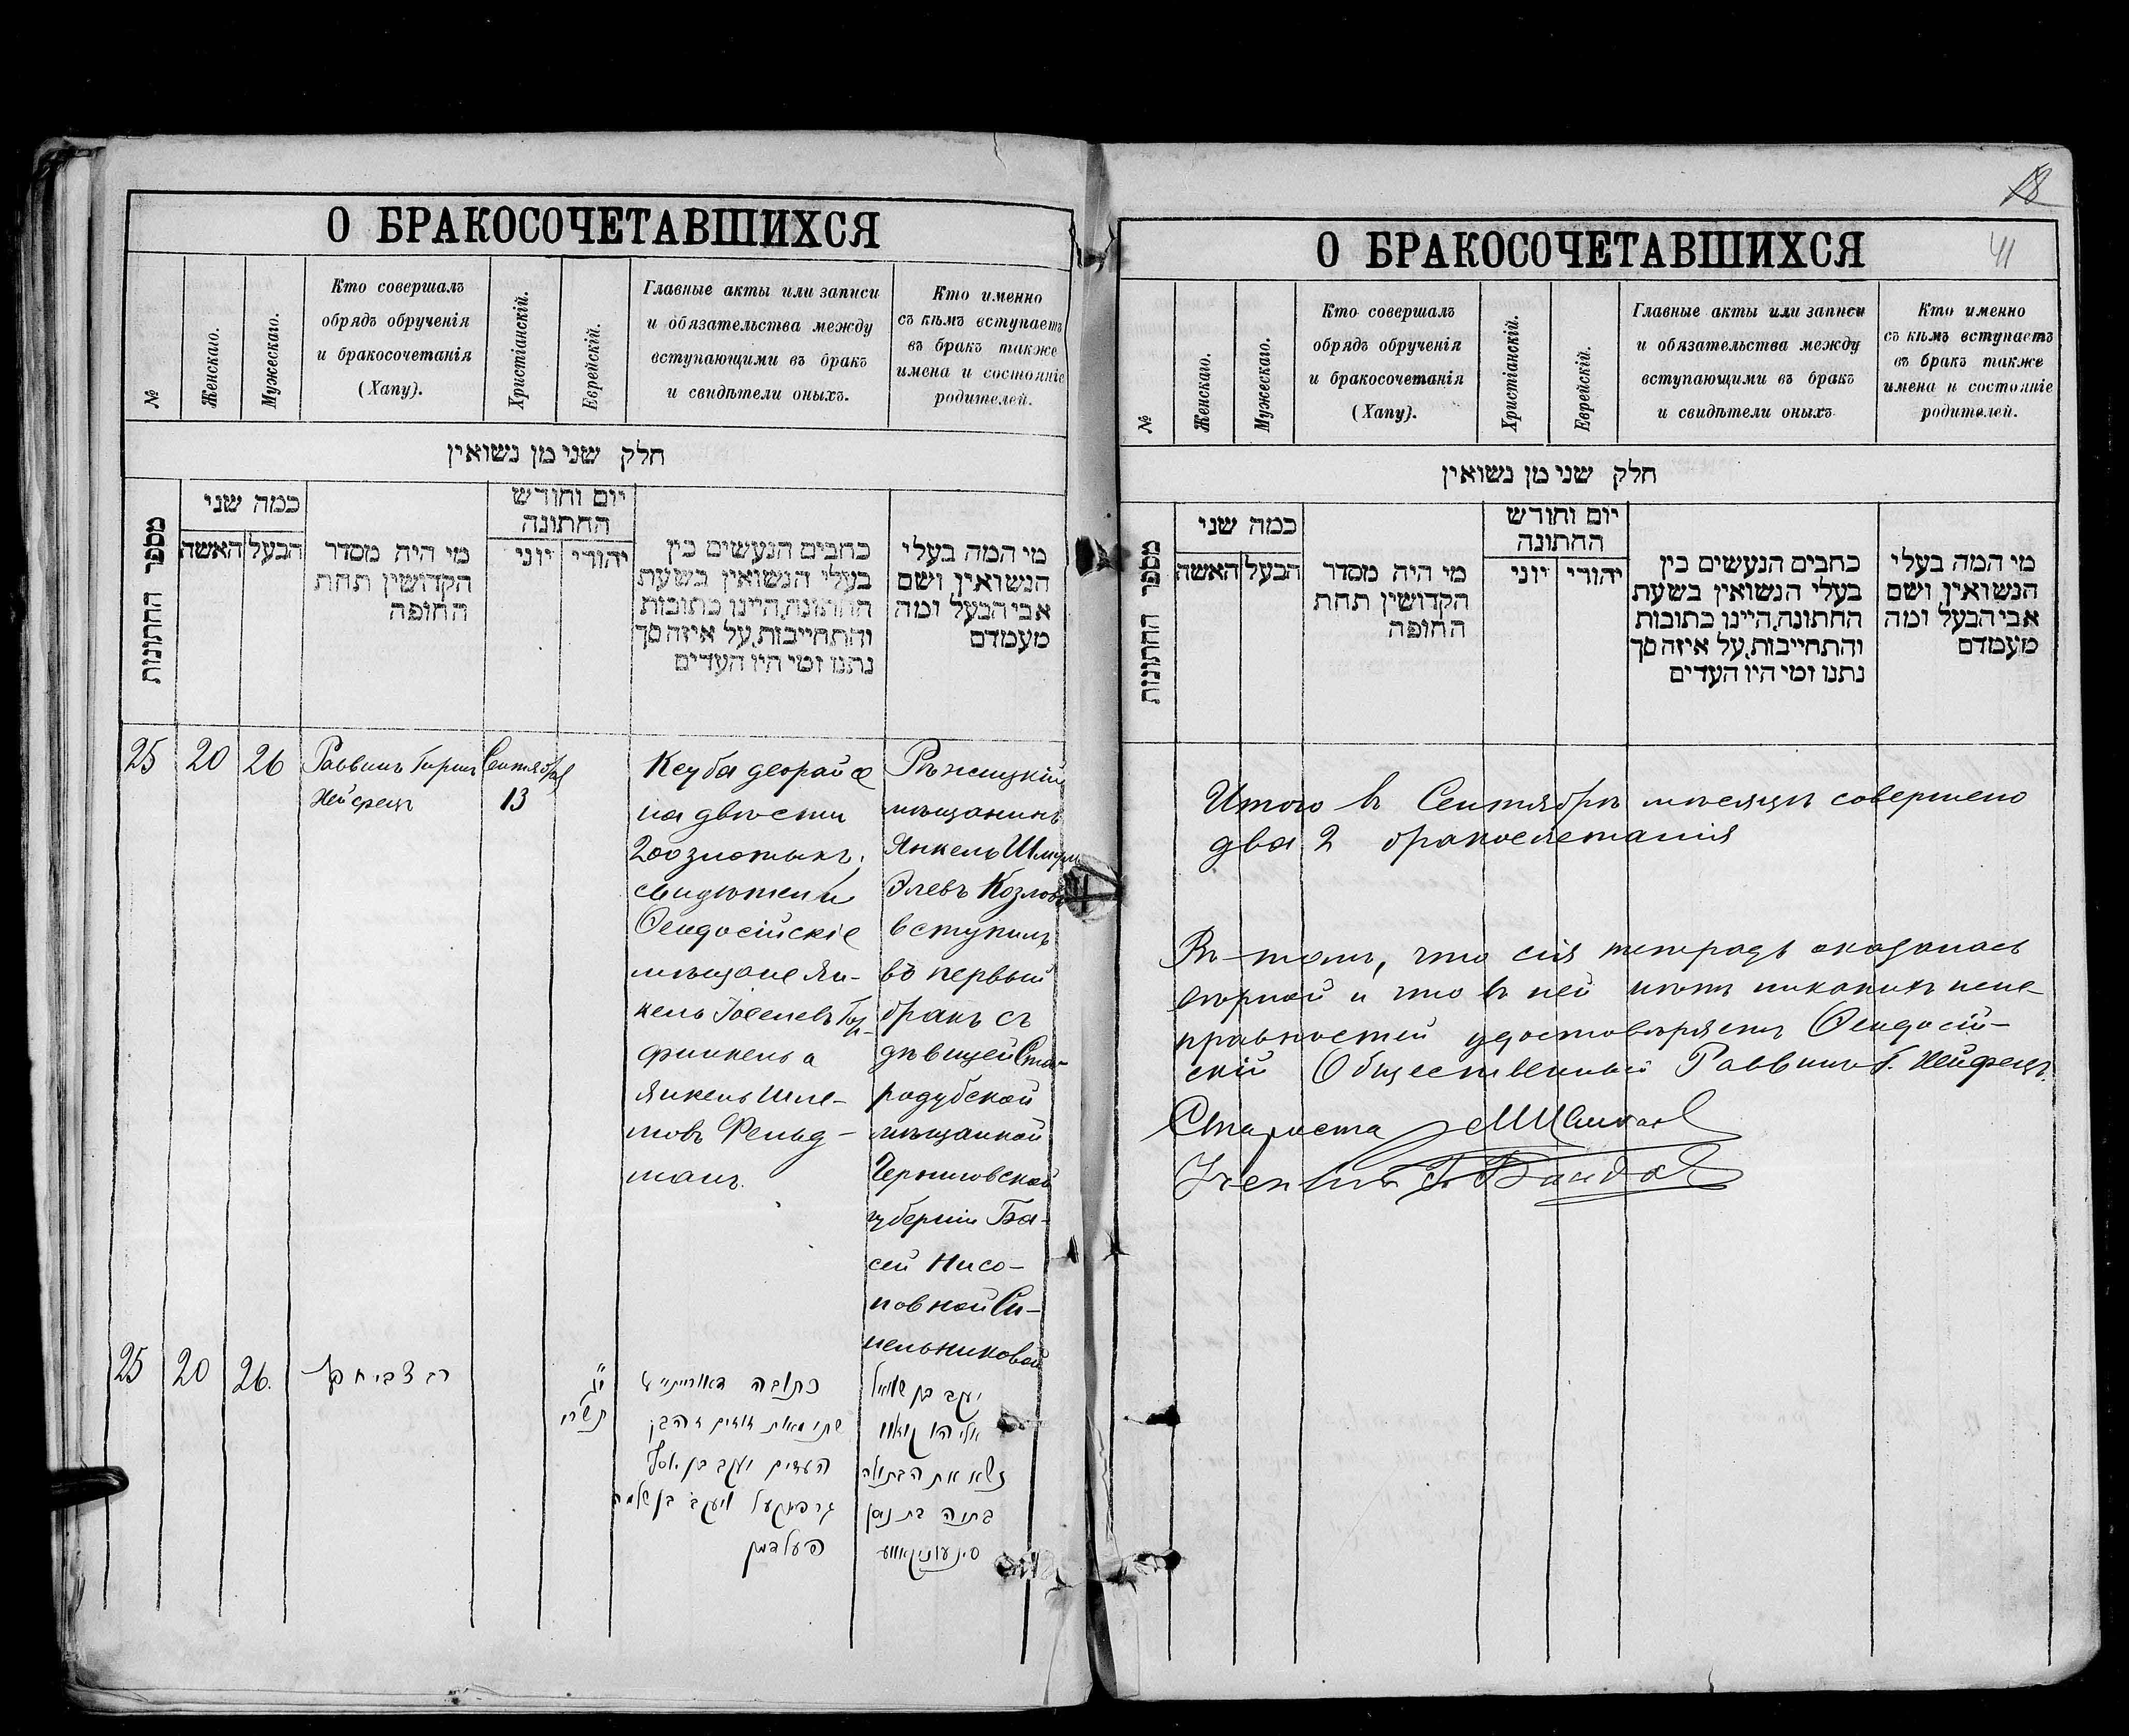 О БРАКОСОЧЕТАВШИХСЯ
№
Женскаго.
Мужескаго.
Кто совершалъ
обрядъ обрученія
и бракосочетанія
(Хапу).
Христіанскій.
Еврейскій.
Главные акты или записи
и обязательства между
вступающими въ бракъ
и свидѣтели оныхъ.
Кто именно
съ кѣмъ вступаетъ
въ бракъ также
имена и состояніе
родителей.
חלק שני מן נשואין
מספר החתונות
כמה שני
האשה
הבעל
מי היה מסדר
הקדושין תחת
החופה
יום וחודש
החתונה
יוני
יהודי
כתבים הנעשים בין
בעלי הנשואין בשעת
החתונה, היינו כתובות
והתחייבות, על איזה סך
נתנו ומי היו העדים
מי המה בעלי
הנשואין ושם
אבי הבעל ומה
מעמדם
25
20
26
Раввинъ Гирш
Хейфецъ
Сентября
13
Кеуба деорайсе
на двѣсти
200 злотыхъ.
свидѣтели
Ѳеодосійскіе
мѣщане Ян-
кель Іоселевъ Гар-
финкель а
Янкель Шле-
мовъ Фельд-
манъ.
Рѣжицкій
мѣщанинъ
Янкель Шмуль
Элевъ Козловъ
вступилъ
въ первый
бракъ съ
дѣвицей Ста-
родубской
мѣщанкой
Черниговской
губерніи Ба-
сей Нисо-
новной Си-
нельниковой
25
20
26.
רב צבי חפץ
יג
תשרי
כתובה דאורייתא
שתי מאות זוזים
העדים יעקב בן יוסף
גרפינקעל ויעקב בן שלמה
פעלדמן
יעקב בן שמואל
אליהו קאזלאוו
נשא את הבתולה
בתיה בת ניסן
סינעלניקאווע
18
О БРАКОСОЧЕТАВШИХСЯ
41
№
Женскаго.
Мужескаго.
Кто совершалъ
обрядъ обрученія
и бракосочетанія
(Хапу).
Христіанскій.
Еврейскій.
Главные акты или записи
и обязательства между
вступающими въ бракъ
и свидѣтели оныхъ
Кто именно
съ кѣмъ вступаетъ
въ бракъ также
имена и состояніе
родителей.
חלק שני מן נשואין
מספר החתונות
כמה שני
האשה
הבעל
מי היה מסדר
הקדושין תחת
החופה
יום וחודש
החתונה
יוני
יהודי
כתבים הנעשים בין
בעלי הנשואין בשעת
החתונה, היינו כתובות
והתחייבות, על איזה סך
נתנו ומי היו העדים
מי המה בעלי
הנשואין ושם
אבי הבעל ומה
מעמדם
Итого въ Сентябрѣ мѣсяцѣ совершено
два 2 бракосочетанія
Въ томъ, что сія тетрадь оказалась
вѣрной и что въ ней нѣтъ никакихъ неис-
правностей удостовѣряетъ Ѳеодосій-
скій Общественный Раввинъ Г. Хейфецъ.
Староста
Ученый